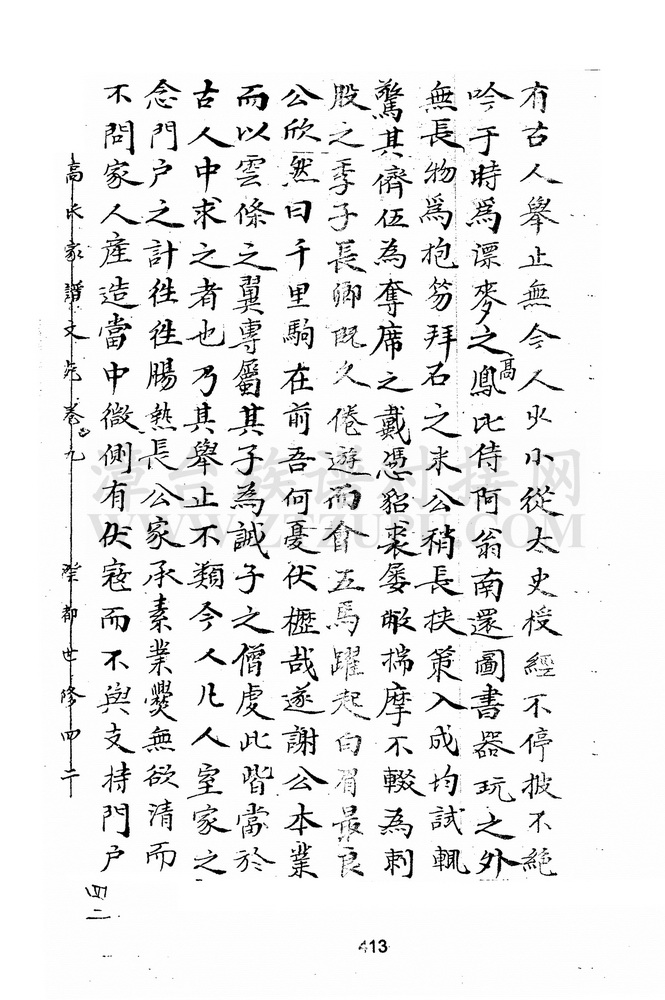 有古人舉止無令人少小從太史授經不停披不絶
吟于時爲漂麥之鳳高比侍阿翁南還圖書器玩之外
無長物爲抱笏拜石之米公稍長挟策入成均試輒
驚其儕伍為奪席之戴憑貂裘屡敝揣摩不輟為刺
股之季子長卿既久倦遊而會五馬躍起白眉最良
公欣然曰千里駒在前吾何憂伏櫪哉遂謝公本業
而以雲條之翼專屬其子為誡子之僧虔此皆當於
古人中求之者也乃其舉止不類今人凡人室家之
念門户之計徃徃腸熱長公家承素業爨無欲清而
不問家人産造當中微側有伏寇而不與支持門户
高氏家譜文苑卷之九
四二
413